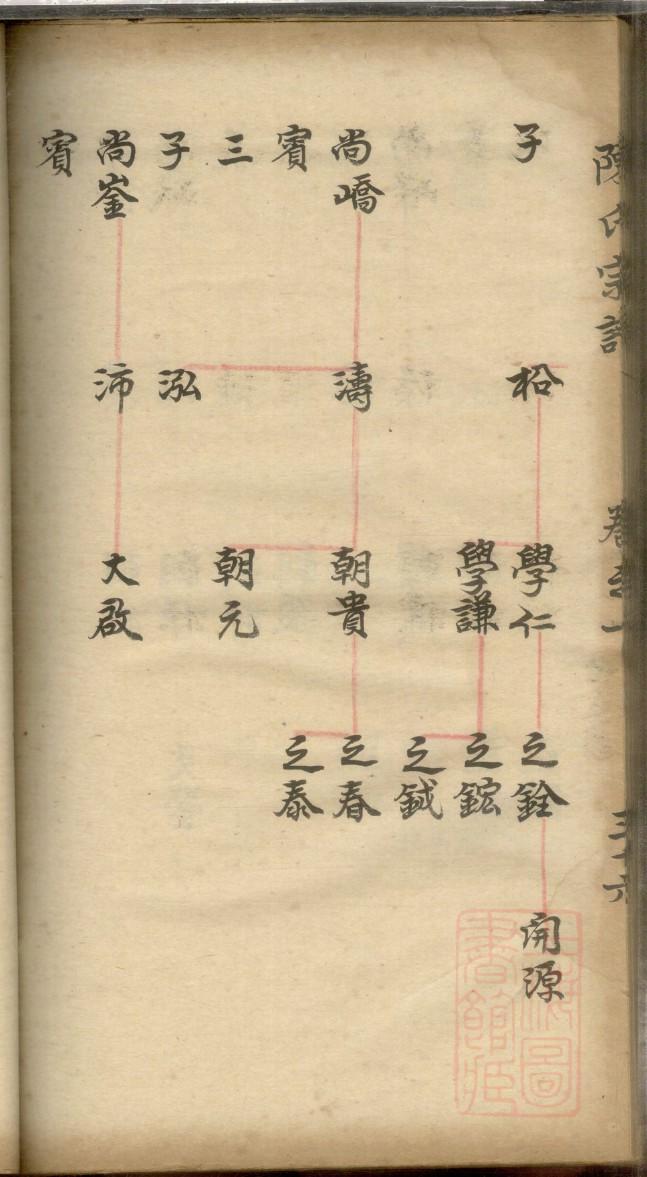 陳氏宗譜 卷之一 三十六
子 松 學仁 之銓 開源
學謙 之鋐
之鉞
尚嶠 濤 朝貴 之春
賓 之泰
三 朝元
子 泓
尚崟 沛 大啟
賓
上海圖
書館藏